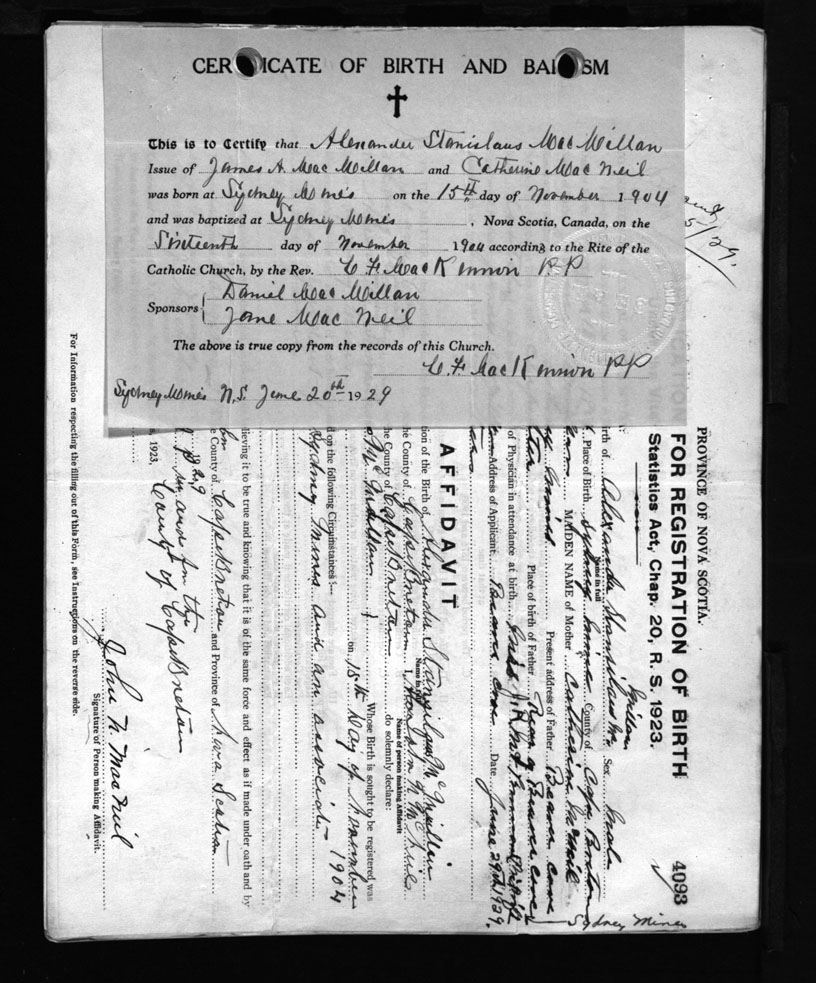 CERTIFICATE OF BIRTH AND BAPTISM
This is to Certify that Alexander Stanislaus MacMillan
Issue of James A. MacMillan and Catherine MacNeil
was born at Sydney Mines on the 15th day of November 1904
and was baptized at Sydney Mines, Nova Scotia, Canada, on the
Sixteenth day of November 1904 according to the Rite of the
Catholic Church, by the Rev. C. F. MacKinnon P.P
Sponsors { Daniel MacMillan
Jane MacNeil
The above is true copy from the records of this Church.
C. F. MacKinnon P.P
Sydney Mines N.S. June 20th 1929
5/29.
PROVINCE OF NOVA SCOTIA.
FOR REGISTRATION OF BIRTH
4093
Statistics Act, Chap. 20, R. S. 1923.
Millan
irth of Alexander Stanislaus Mc Sex Male
Name in full
Place of Birth Sydney Mines County of Cape Breton
Sydney Mines
MAIDEN NAME of Mother Catherine McNeil
Present address of Father Beaver Cove
Place of birth of Father Rear of Beaver Cove
of Physician in attendance at birth
Address of Applicant Beaver Cove Date June 29th 1929.
AFFIDAVIT
tion of the Birth of Alexander Stanislaus McMillan
Name in full
he County of Cape Breton I, John N. McNeil
Name of person making Affidavit
the County of Cape Breton do solemnly declare:
McMillan } Whose Birth is sought to be registered, was
on 15th Day of November 1904
d on the following Circumstances:—
Sydney Mines and am associate
lieving it to be true and knowing that it is of the same force and effect as if made under oath and by
e County of Cape Breton and Province of Nova Scotia
1929 in and for the
County of Cape Breton
, 1923.
John N MacNeil
Signature of Person making Affidavit.
For Information respecting the filling out of this Form, see Instructions on the reverse side.